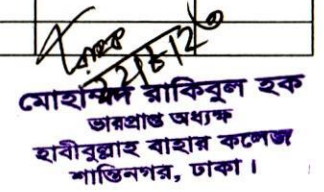 মোহাম্মদ রাকিবুল হক
ভারপ্রাপ্ত অধ্যক্ষ
হাবীবুল্লাহ বাহার কলেজ
শান্তিনগর, ঢাকা।